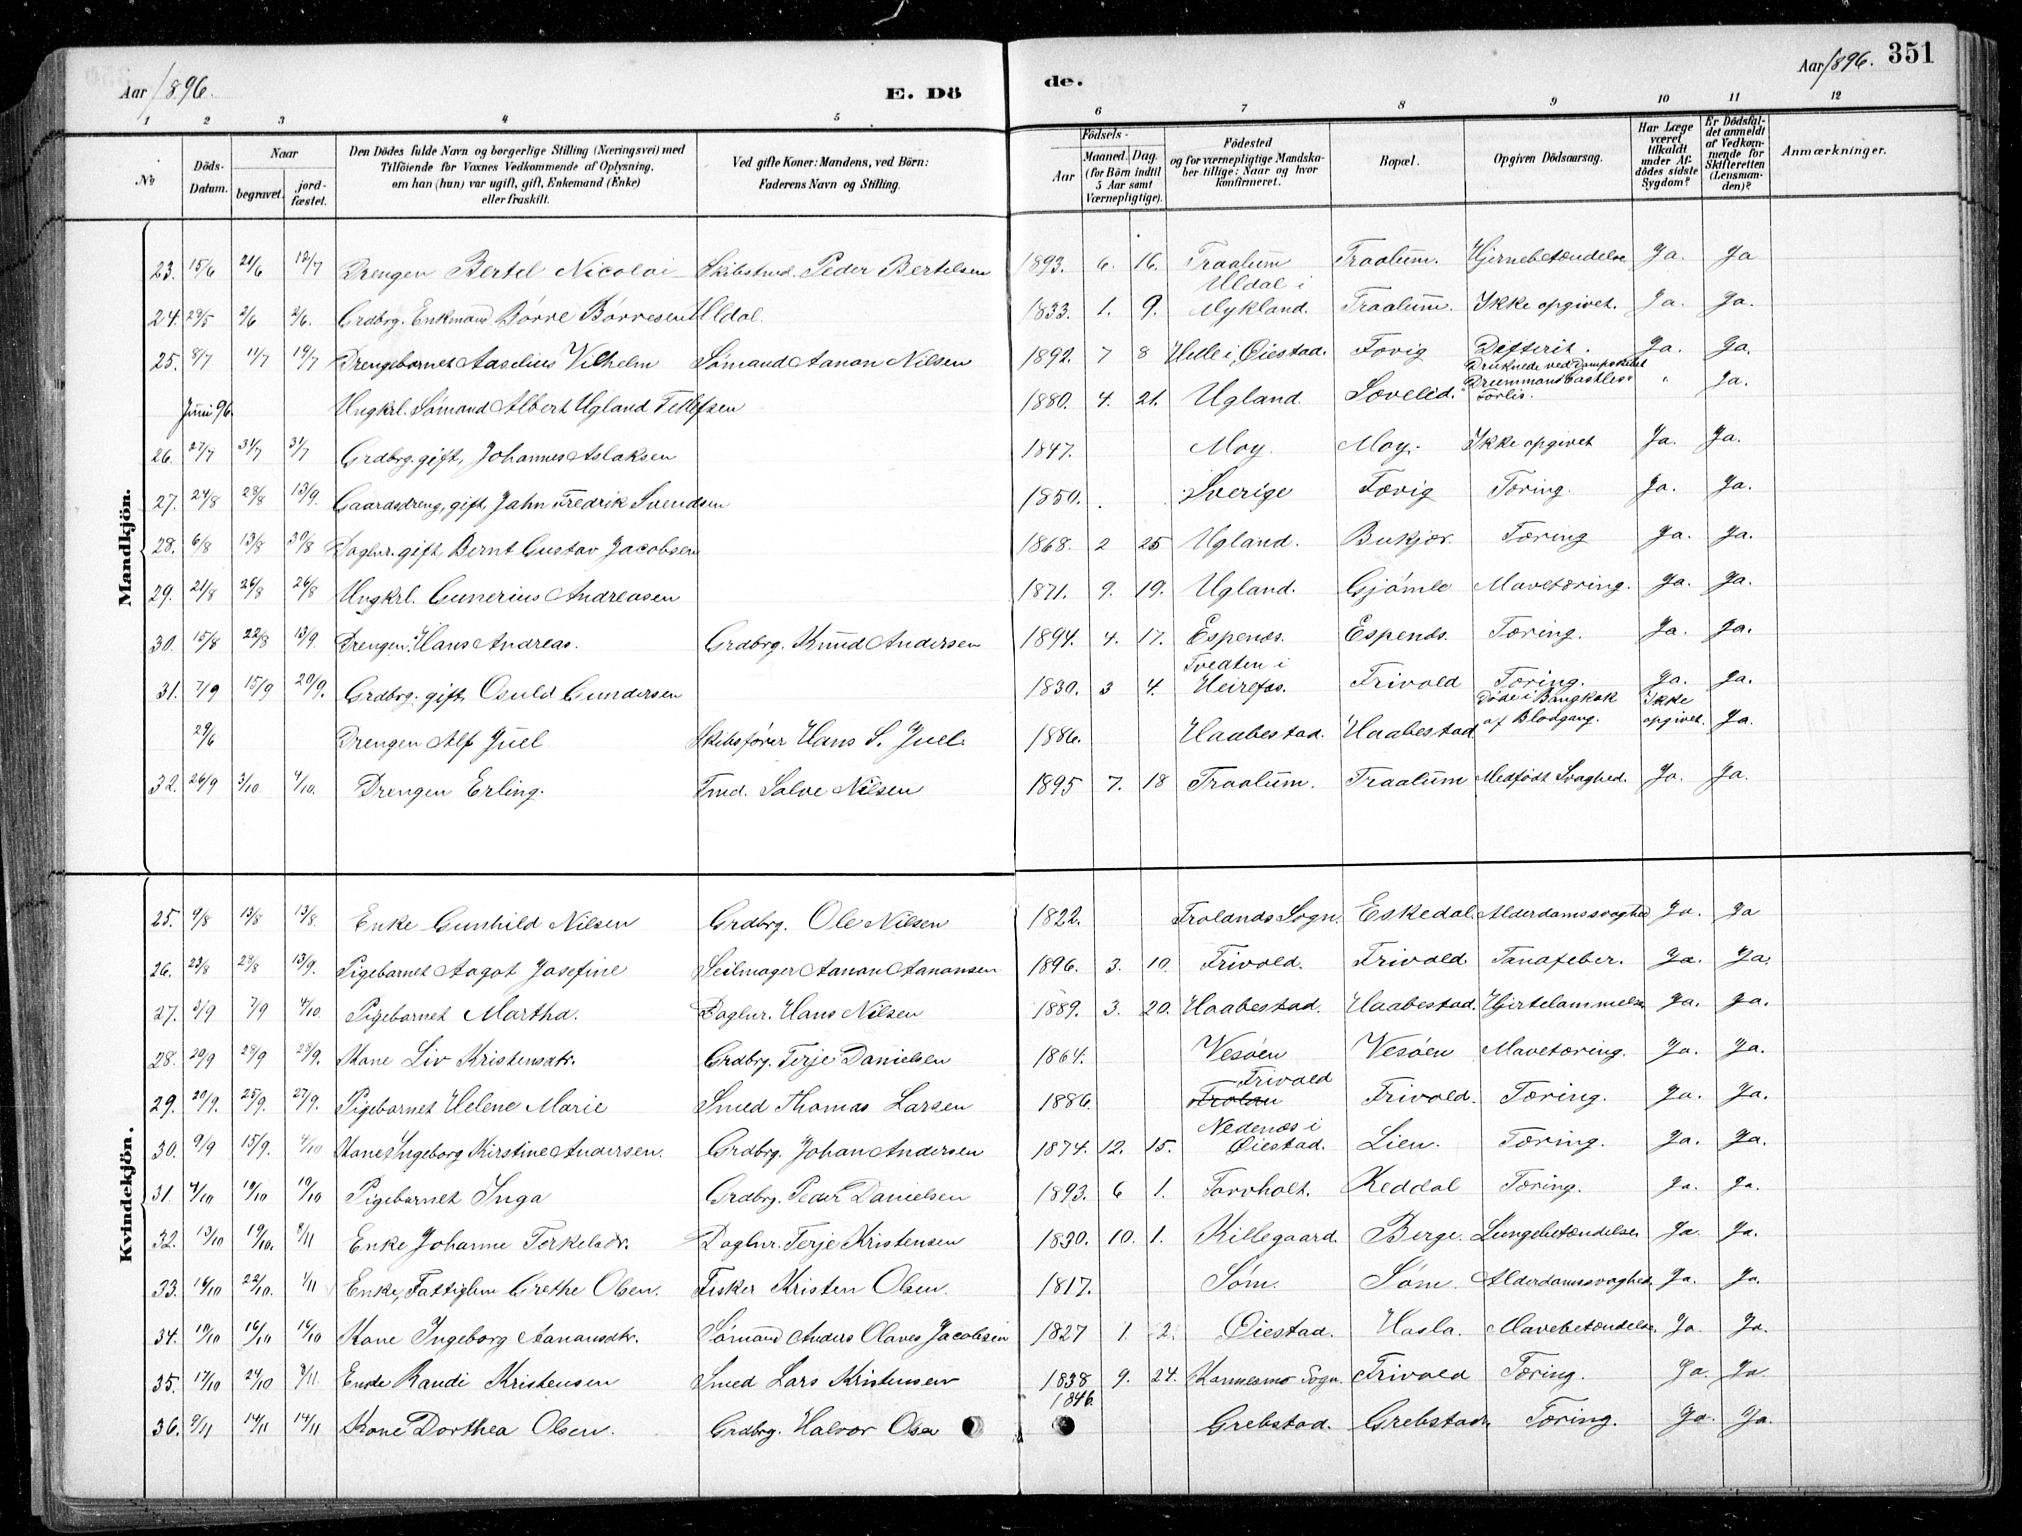 Aar 1896.
E. Dö
de.
Aar 1896. 351
1 2 3 4 5 6 7 8 9 10 11 12
No
Döds-Datum.
Naar
begravet.
jord-fæstet.
Den Dödes fulde Navn og borgerlige Stilling (Næringsvei) med
Tilföiende for Voxnes Vedkommende af Oplysning,
om han (hun) var ugift, gift, Enkemand (Enke)
eller fraskilt.
Ved gifte Koner: Mandens, ved Börn:
Faderens Navn og Stilling.
Födsels-
Aar
Maaned. Dag.
(for Börn indtil
5 Aar samt
Værnepligtige).
Födested
og for værnepligtige Mandska-
ber tillige: Naar og hvor
konfirmeret.
Bopæl.
Opgiven Dödsaarsag.
Har Læge
været
tilkaldt
under Af-
dödes sidste
Sygdom?
Er Dödsfal-
det anmeldt
af Vedkom-
mende for
Skifteretten
(Lensman-
den)?
Anmærkninger.
Mandkjön.
23. 15/6 21/6 12/7 Drengen Bertel Nicolai Skibstmd. Peder Bertelsen 1893. 6. 16. Traalum Traalum. Hjernebetændelse Ja. Ja
24. 29/5 2/6 2/6. Grdbrg. Enkmand Børre Børresen Uldal. 1833. 1. 9. Uldal i Mykland. Traalum. Ikke opgivet. Ja. Ja.
25. 8/7 11/7 19/7 Drengebarnet Aaselius Vilhelm Sømand Aanon Nilsen 1892. 7 8 Helle i Øiestad. Fævig Difterit. Ja. Ja.
Juni 96. Ungkrl. Sømand Albert Ugland Tellefsen 1880. 4. 21. Ugland. Sævelid. Druknede ved Dampskibet Drummond Castles Forlis. " Ja.
26. 27/7 31/7 31/7 Grdbrg. gift, Johannes Aslaksen 1847. Moy. Moy. Ikke opgivet Ja. Ja.
27. 24/8 29/8 13/9. Gaardsdreng, gift, Jahn Fredrik Svendsen 1850. Sverige Fævig Tæring. Ja. Ja.
28. 6/8 13/8 30/8 Daglnr. gift Bernt Gustav Jacobsen 1868. 2 25 Ugland. Bukjær. Tæring Ja. Ja.
29. 21/8 26/8 26/8 Ungkrl. Gunerius Andreasen 1871. 9. 19. Ugland. Gjømle Mavetæring. Ja. Ja.
30. 15/8 22/8 13/9. Drengen Hans Andreas. Grdbrg. Knud Andersen 1894. 4. 17. Espenæs. Espenæs. Tæring. Ja. Ja.
31. 7/9 15/9 20/9. Grdbrg. gift, Osuld Gundersen 1830. 3 4. Tvedten i Heirefos. Frivold Tæring. Ja. Ja.
29/6 Drengen Alf Juel Skibsfører Hans S. Juel. 1886. Haabestad. Haabestad Døde i Bangkok af Blodgang. Ikke opgivet. Ja.
32. 26/9 3/10 4/10. Drengen Erling. Tmd. Salve Nilsen 1895 7. 18 Traalum. Traalum Medfødt Svaghed. Ja. Ja.
Kvindekjön.
25. 9/8 13/8 13/8. Enke Gunhild Nilsen Grdbrg. Ole Nilsen 1822. Frolands Sogn. Eskedal. Alderdomssvaghed Ja. Ja
26. 23/8 29/8 13/9. Pigebarnet Aagot Josefine Seilmager Aanon Aanonsen 1896. 3. 10. Frivold. Frivold Tanafeber. Ja. Ja.
27. 3/9 7/9 4/10 Pigebarnet Martha. Daglnr. Hans Nilsen 1889. 3. 20. Haabestad. Haabestad. Hjertelammelse Ja. Ja.
28. 20/9 29/9 29/9. Kone Liv Kristensdtr. Grdbrg. Terje Danielsen 1864. Vesøen Vesøen Mavetæring. Ja. Ja.
29. 20/9. 25/9. 27/9. Pigebarnet Helene Marie Smed Thomas Larsen 1886. Frivold Frivold. Tæring. Ja. Ja.
30. 9/9 15/9. 4/10 Kone Ingeborg Kirstine Andersen. Grdbrg. Johan Andersen 1874. 12. 15. Nedenæs i Øiestad. Lien. Tæring. Ja. Ja.
31. 4/10 10/10 10/10 Pigebarnet Inga Grdbrg. Peder Danielsen 1893. 6 1. Torvholt. Reddal Tæring. Ja. Ja.
32. 13/10 19/10. 8/11 Enke Johanne Torkelsdr. Daglnr. Terje Kristensen 1830. 10. 1. Killegaard. Berge. Lungebetændelse Ja. Ja.
33. 16/10 22/10. 1/11 Enke, Fattiglm Grethe Olsen. Fisker Kristen Olsen. 1817. Søm. Søm. Alderdomssvaghed. Ja. Ja.
34. 10/10 16/10 16/10 Kone Ingeborg Aanonsdtr. Sømand Anders Olaves Jacobsen 1827 1. 2. Øiestad. Hasla. Mavebetændelse. Ja. Ja.
35. 17/10 24/10 8/11. Enke Randi Kristensen Smed Lars Kristensen 1838 9. 24. Sogn. Frivold Tæring. Ja. Ja
36. 9/11 14/11 14/11 Kone Dorthea Olsen. Grdbrg. Halvor Olsen 1846. Grebstad. Grebstad. Tæring. Ja. Ja.